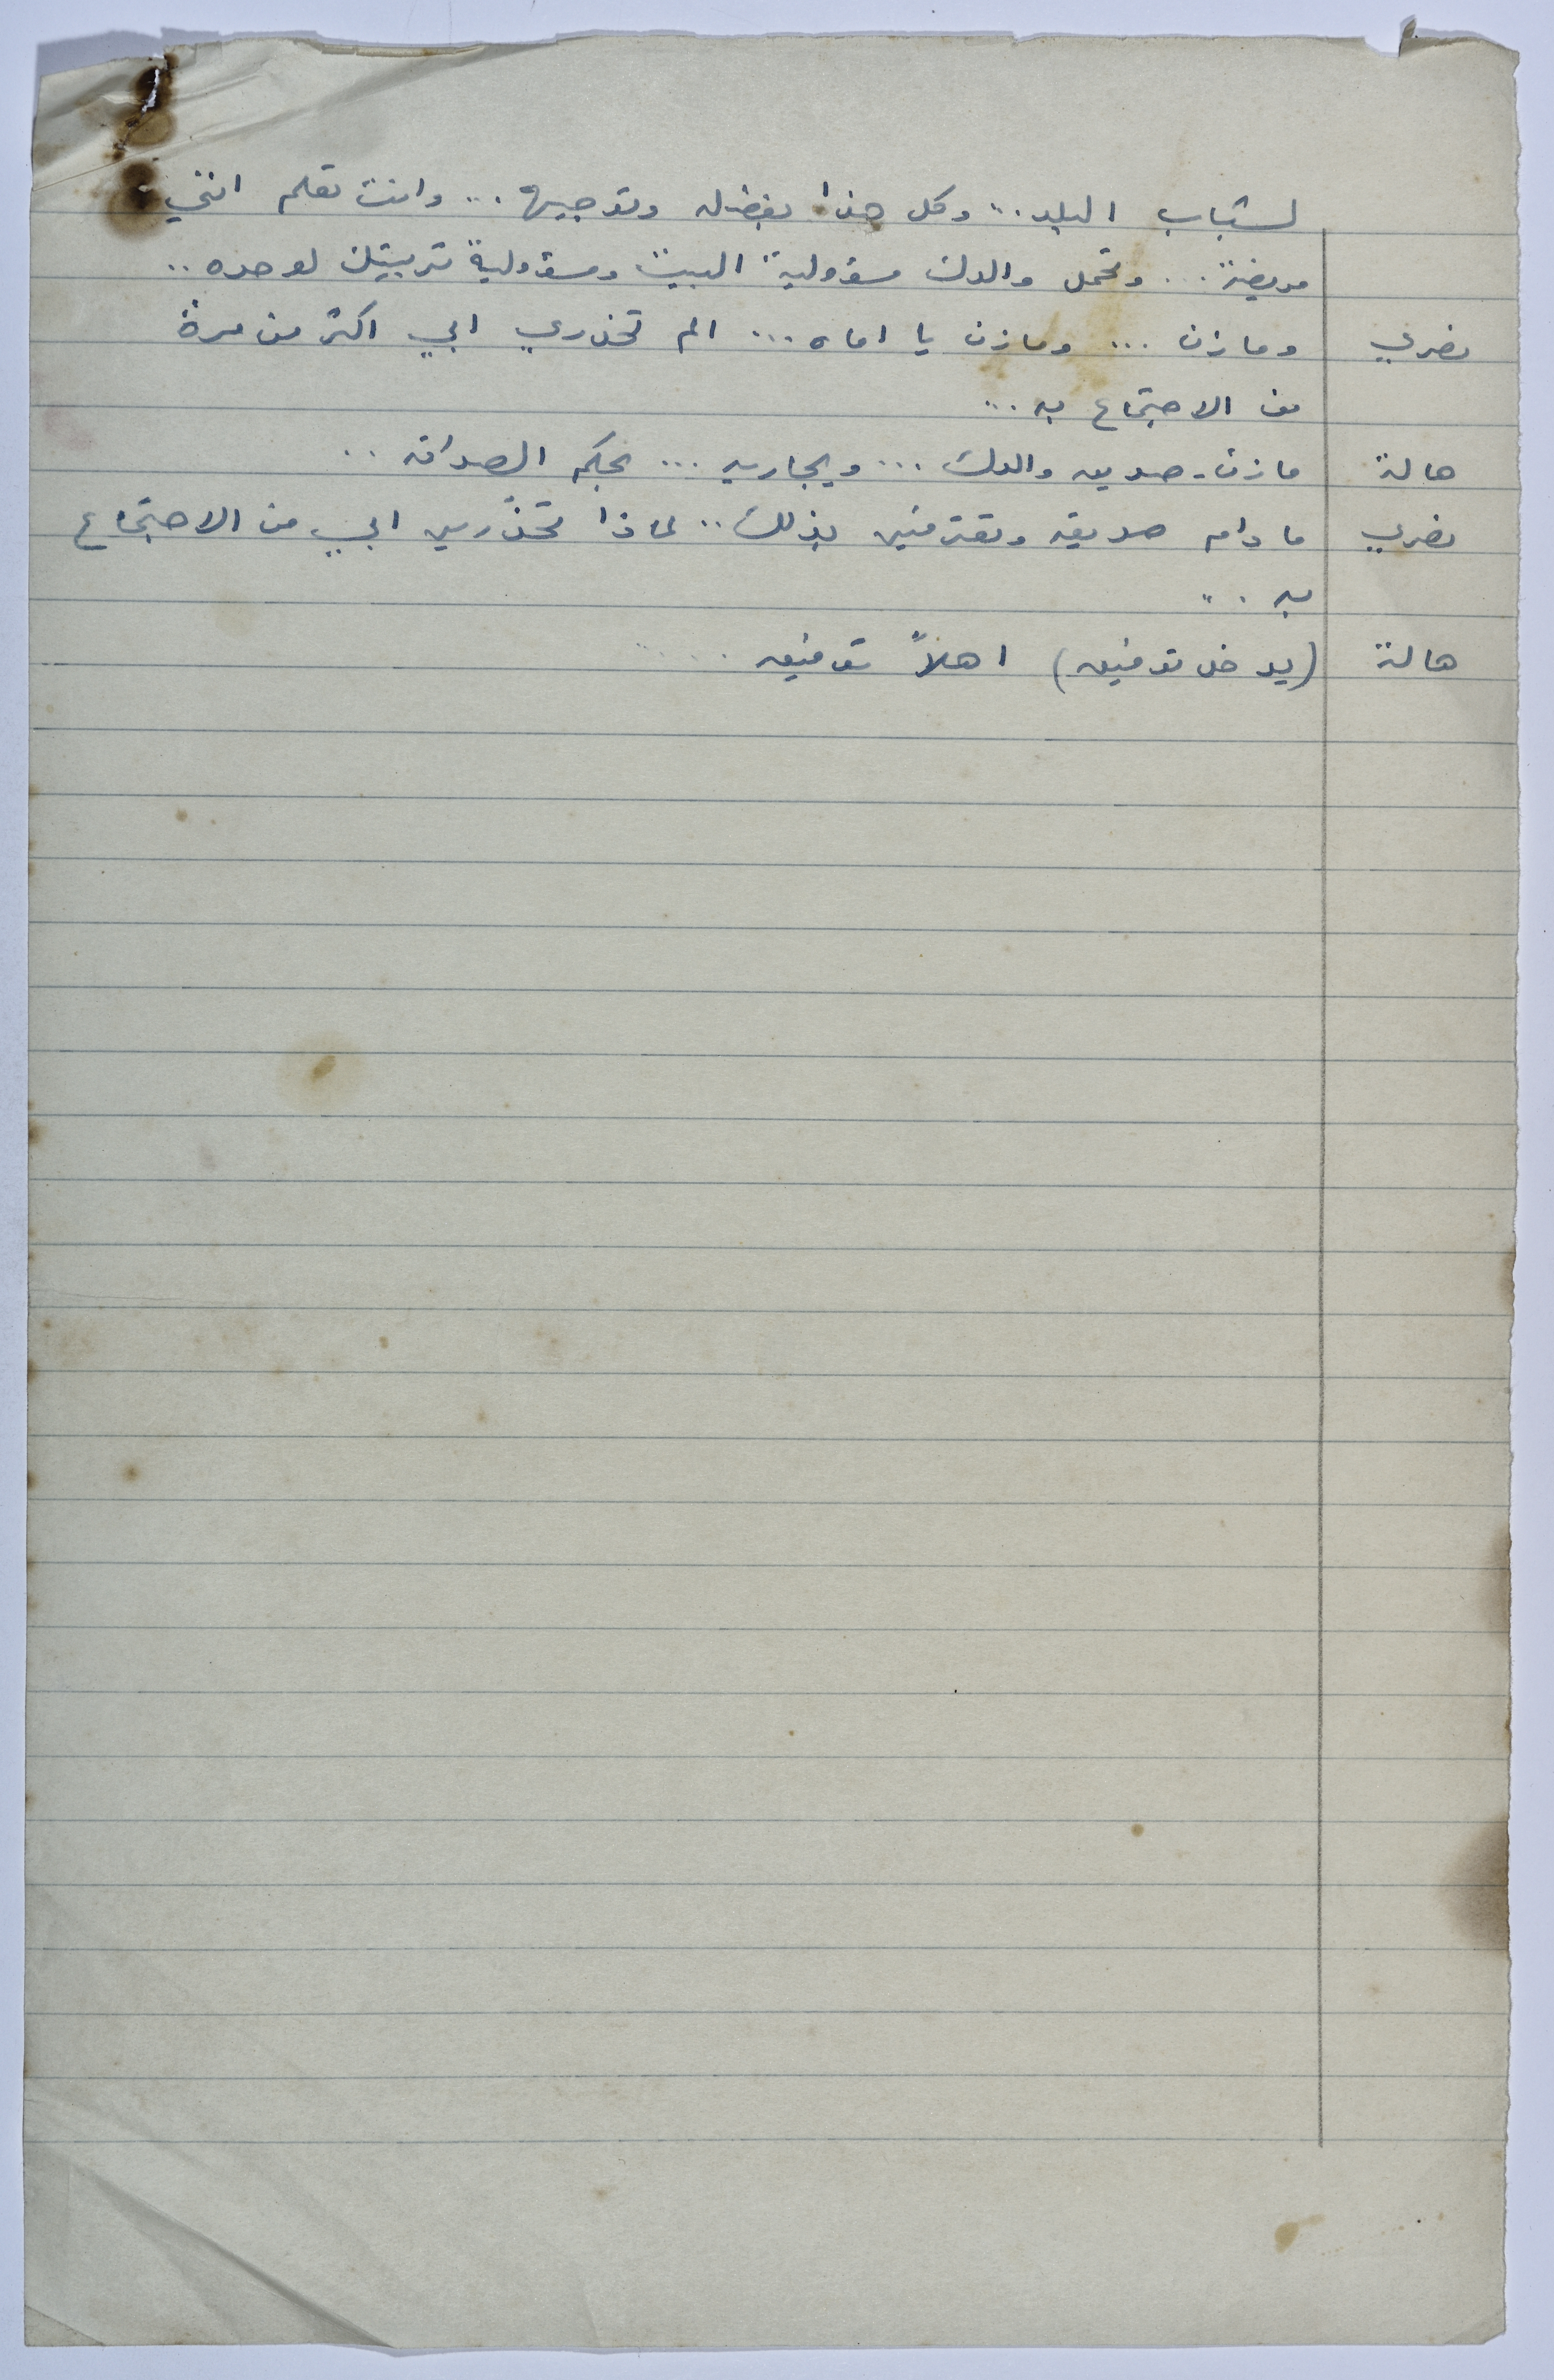 لشباب البلد... وكل هذا بفضله وتوجيهه... وانت تعلم انني
مريضة... وتحمل والدك مسؤولية البيت ومسؤولية تربيتك لوحده..
نصري ومازن... ومازن يا اماه... الم تحذري ابي اكثر من مرة
من الاجتماع به...
هالة مازن. صديق والدك... ويجاريه... بحكم الصداقة..
نصري ما دام صديقه وتعترفين بذلك.. لماذا تحذّرين ابي من الاجتماع
به...
هالة (يدخل توفيق) اهلاً توفيق.....